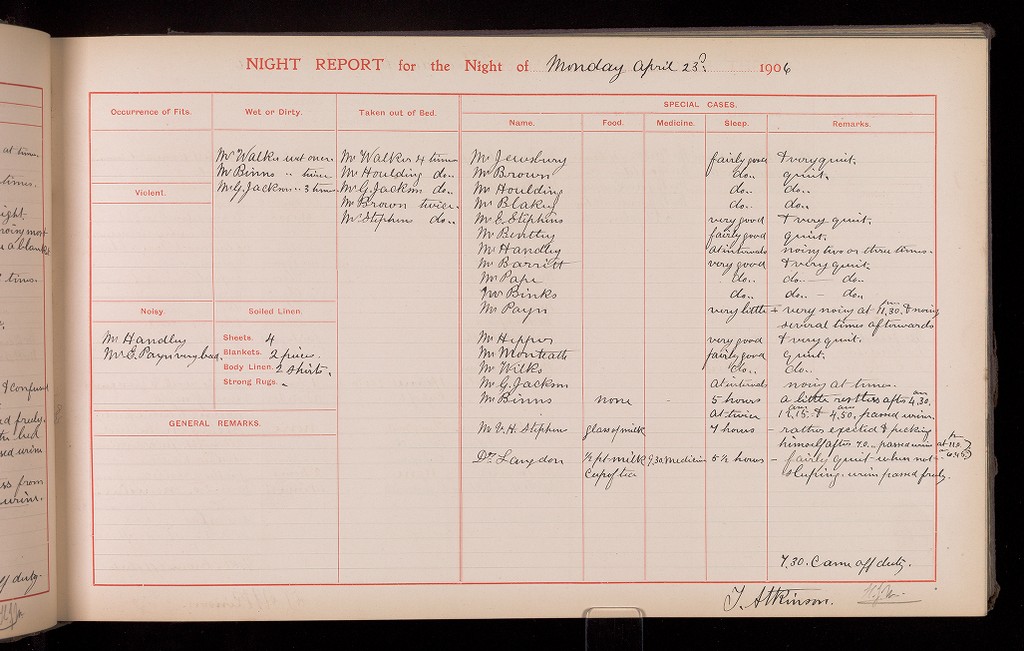 at times.
times.
noisy most
times.
& confused
freely.
passed urine
from
urine.
off duty.
NIGHT REPORT for the Night of Monday April 23rd. 1906
Occurrence of Fits.
Wet or Dirty.
Taken out of Bed.
SPECIAL CASES.
Name. Food. Medicine. Sleep. Remarks.
Mr Walker wet once
Mr Binns " twice
Mr G Jackson " 3 times
Mr Walker 4 times
Mr Houlding do..
Mr G. Jackson do..
Mr Brown twice.
Mr Stephens do..
Violent.
Noisy.
Mr Handley
Mr G. Payn very bad.
Soiled Linen.
Sheets. 4
Blankets. 2 pieces.
Body Linen. 2 shirts.
Strong Rugs. -
GENERAL REMARKS.
Mr Jewsbury fairly good & very quiet.
Mr Brown do.. quiet.
Mr Houlding do.. do..
Mr Blakey do.. do..
Mr E. Stephens very good & very quiet.
Mr Bentley fairly good quiet.
Mr Handley at intervals noisy two or three times.
Mr Barritt very good & very quiet.
Mr Pape do.. do.. — do..
Mr Binks do.. do.. — do..
Mr Payn very little + very noisy at 11.30. pm & noisy
several times afterwards
Mr Hepper very good & very quiet.
Mr Monteath fairly good quiet.
Mr Wilks do.. do..
Mr G. Jackson at intervals noisy at times.
Mr Binns none - 5 hours a little restless after 4.30. am
at twice 12.15. am & 4.50. am passed urine.
Mr V. H. Stephens glass of milk 7 hours - rather excited & pecking
himself after 7.0.. passed urine at 11.0. pm
Dr Langdon ½ pt milk 9.30 medicine 5½ hours - fairly quiet when not
Cup of tea sleeping. urine passed freely.
7.30. Came off duty.
T. Atkinson.